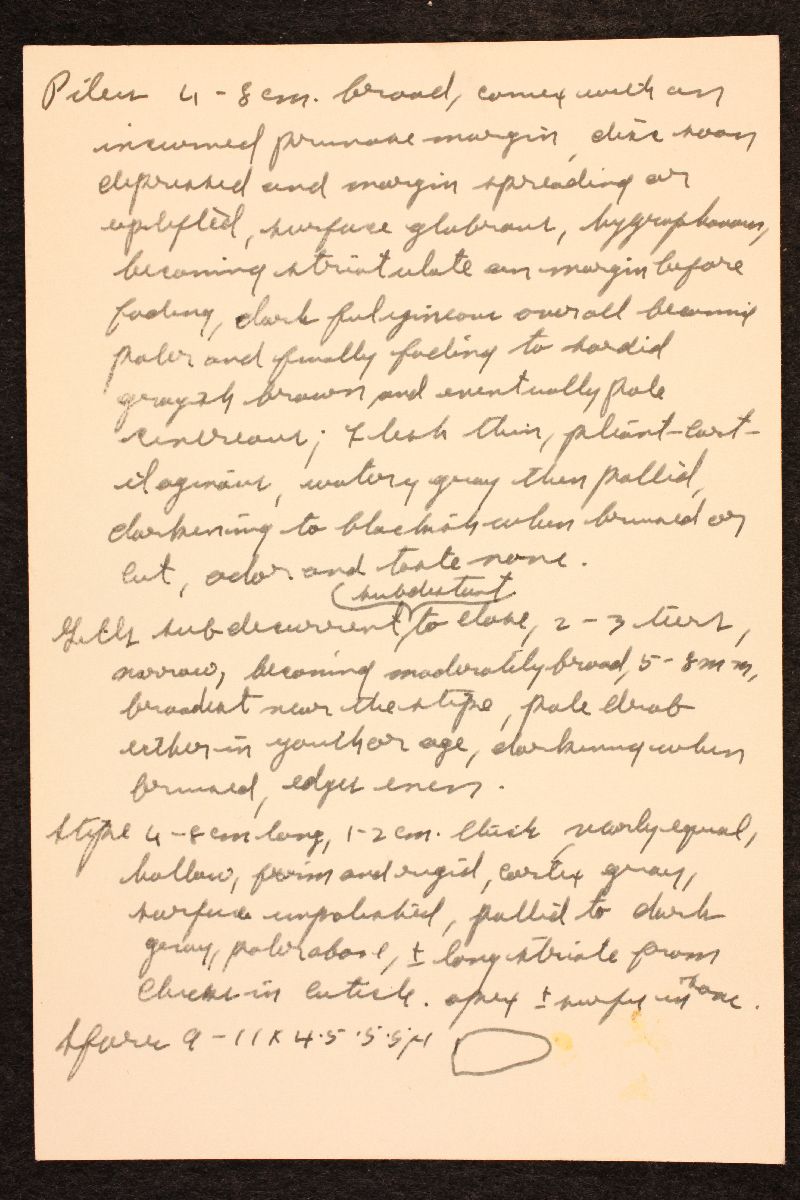 Pileus 4-8 cm. broad, convex with an
incurved pruinose margin, disc soon
depressed and margin spreading or
uplifted, surface glabrous, hygrophanous,
becoming striatulate on margin before
fading, dark fuligineous overall becoming
paler and finally fading to sordid
grayish brown and eventually pale
cinereous; flesh thin, pliant-cart-
ilaginous, watery gray then pallid,
darkening to blackish when bruised or
cut, odor and taste none.
subdistant
Gills subdecurrent, to close, 2-3 tiers,
narrow, becoming moderately broad, 5-8 mm,
broadest near the stipe, pale drab
either in youth or age, darkening when
bruised, edges even.
Stipe 4-8 cm long, 1-2 cm. thick, nearly equal,
hollow, firm and rigid, cortex gray,
surface unpolished, pallid to dark
gray, paler above, ± long striate from
checks in cuticle. apex ± scurfy in one.
Spores 9-11 x 4.5-5.5 μ